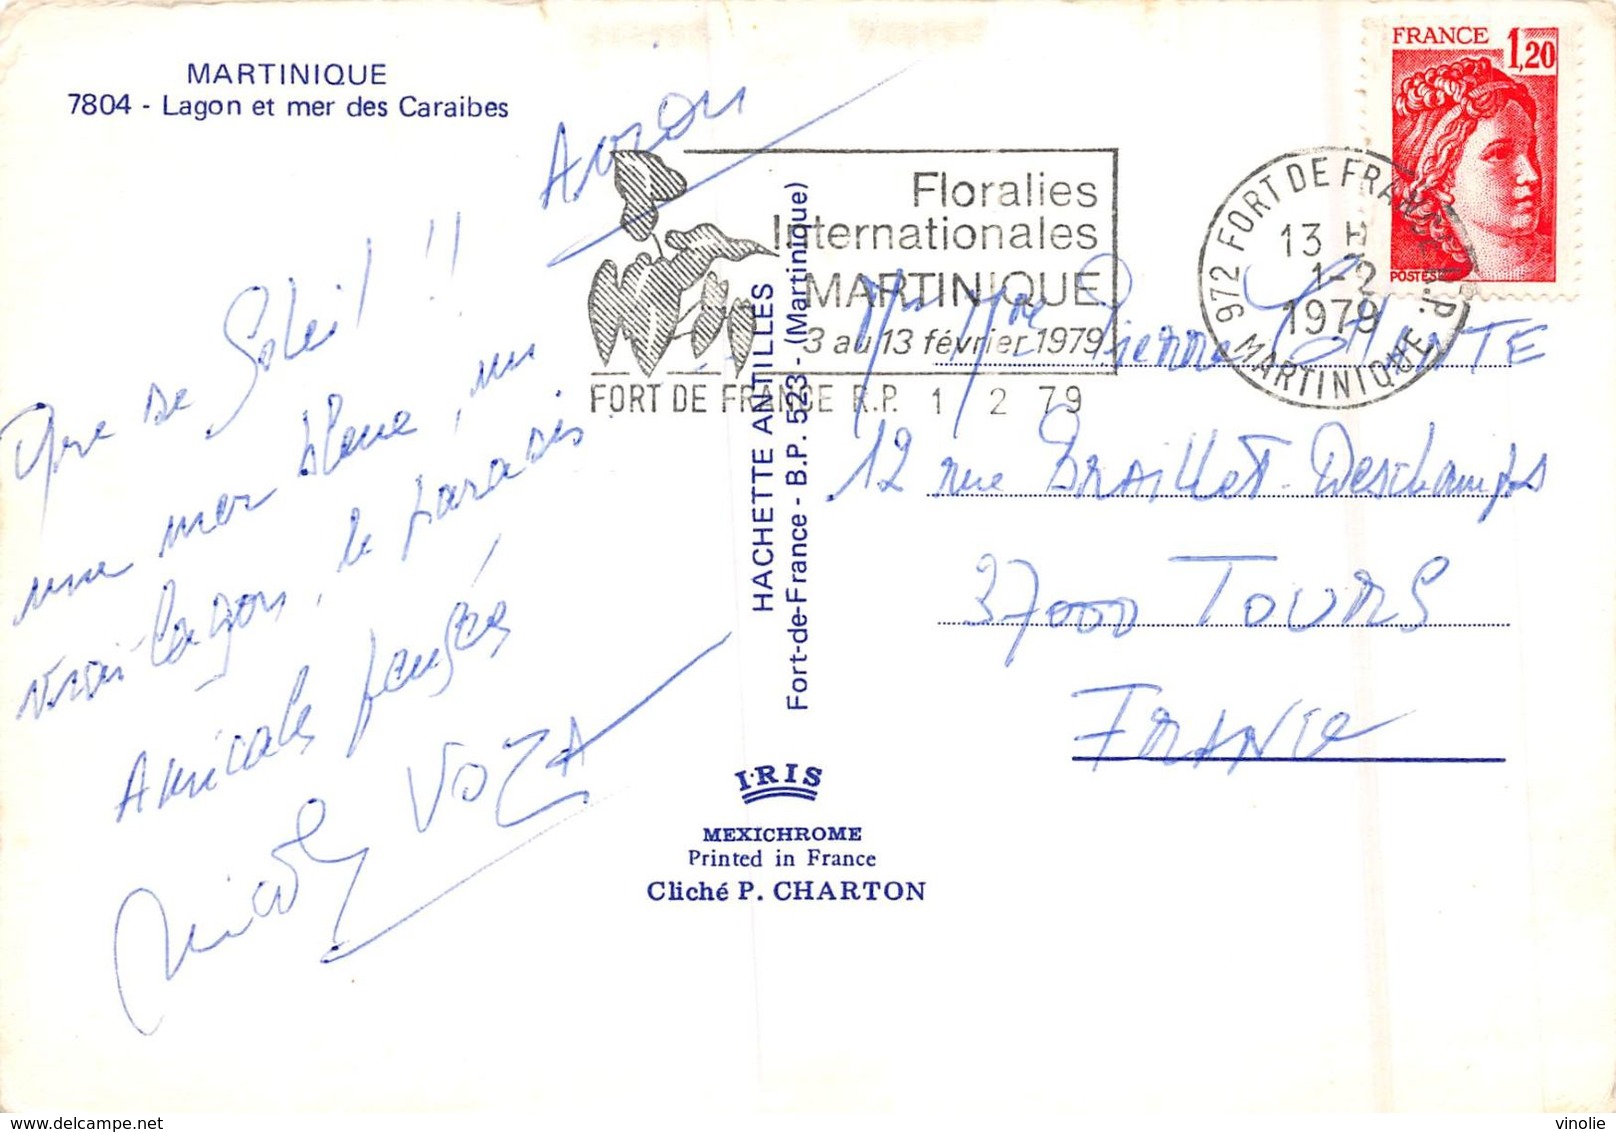 MARTINIQUE
7804 - Lagon et mer des Caraibes
Que de Soleil !!
une mer bleue, un
vrai lagon, le paradis
Amicales pensées
VOZA
FRANCE 1,20
POSTES
972 FORT DE FRANCE R.P.
13 H
1-2
1979
MARTINIQUE
Floralies
Internationales
MARTINIQUE
3 au 13 février 1979
FORT DE FRANCE R.P. 1 2 79
HACHETTE ANTILLES
Fort-de-France - B.P. 523 - (Martinique)
Pierre
12 rue BRAILLET-Deschamps
37000 TOURS
FRANCE
IRIS
MEXICHROME
Printed in France
Cliché P. CHARTON
www.delcampe.net
vinolie